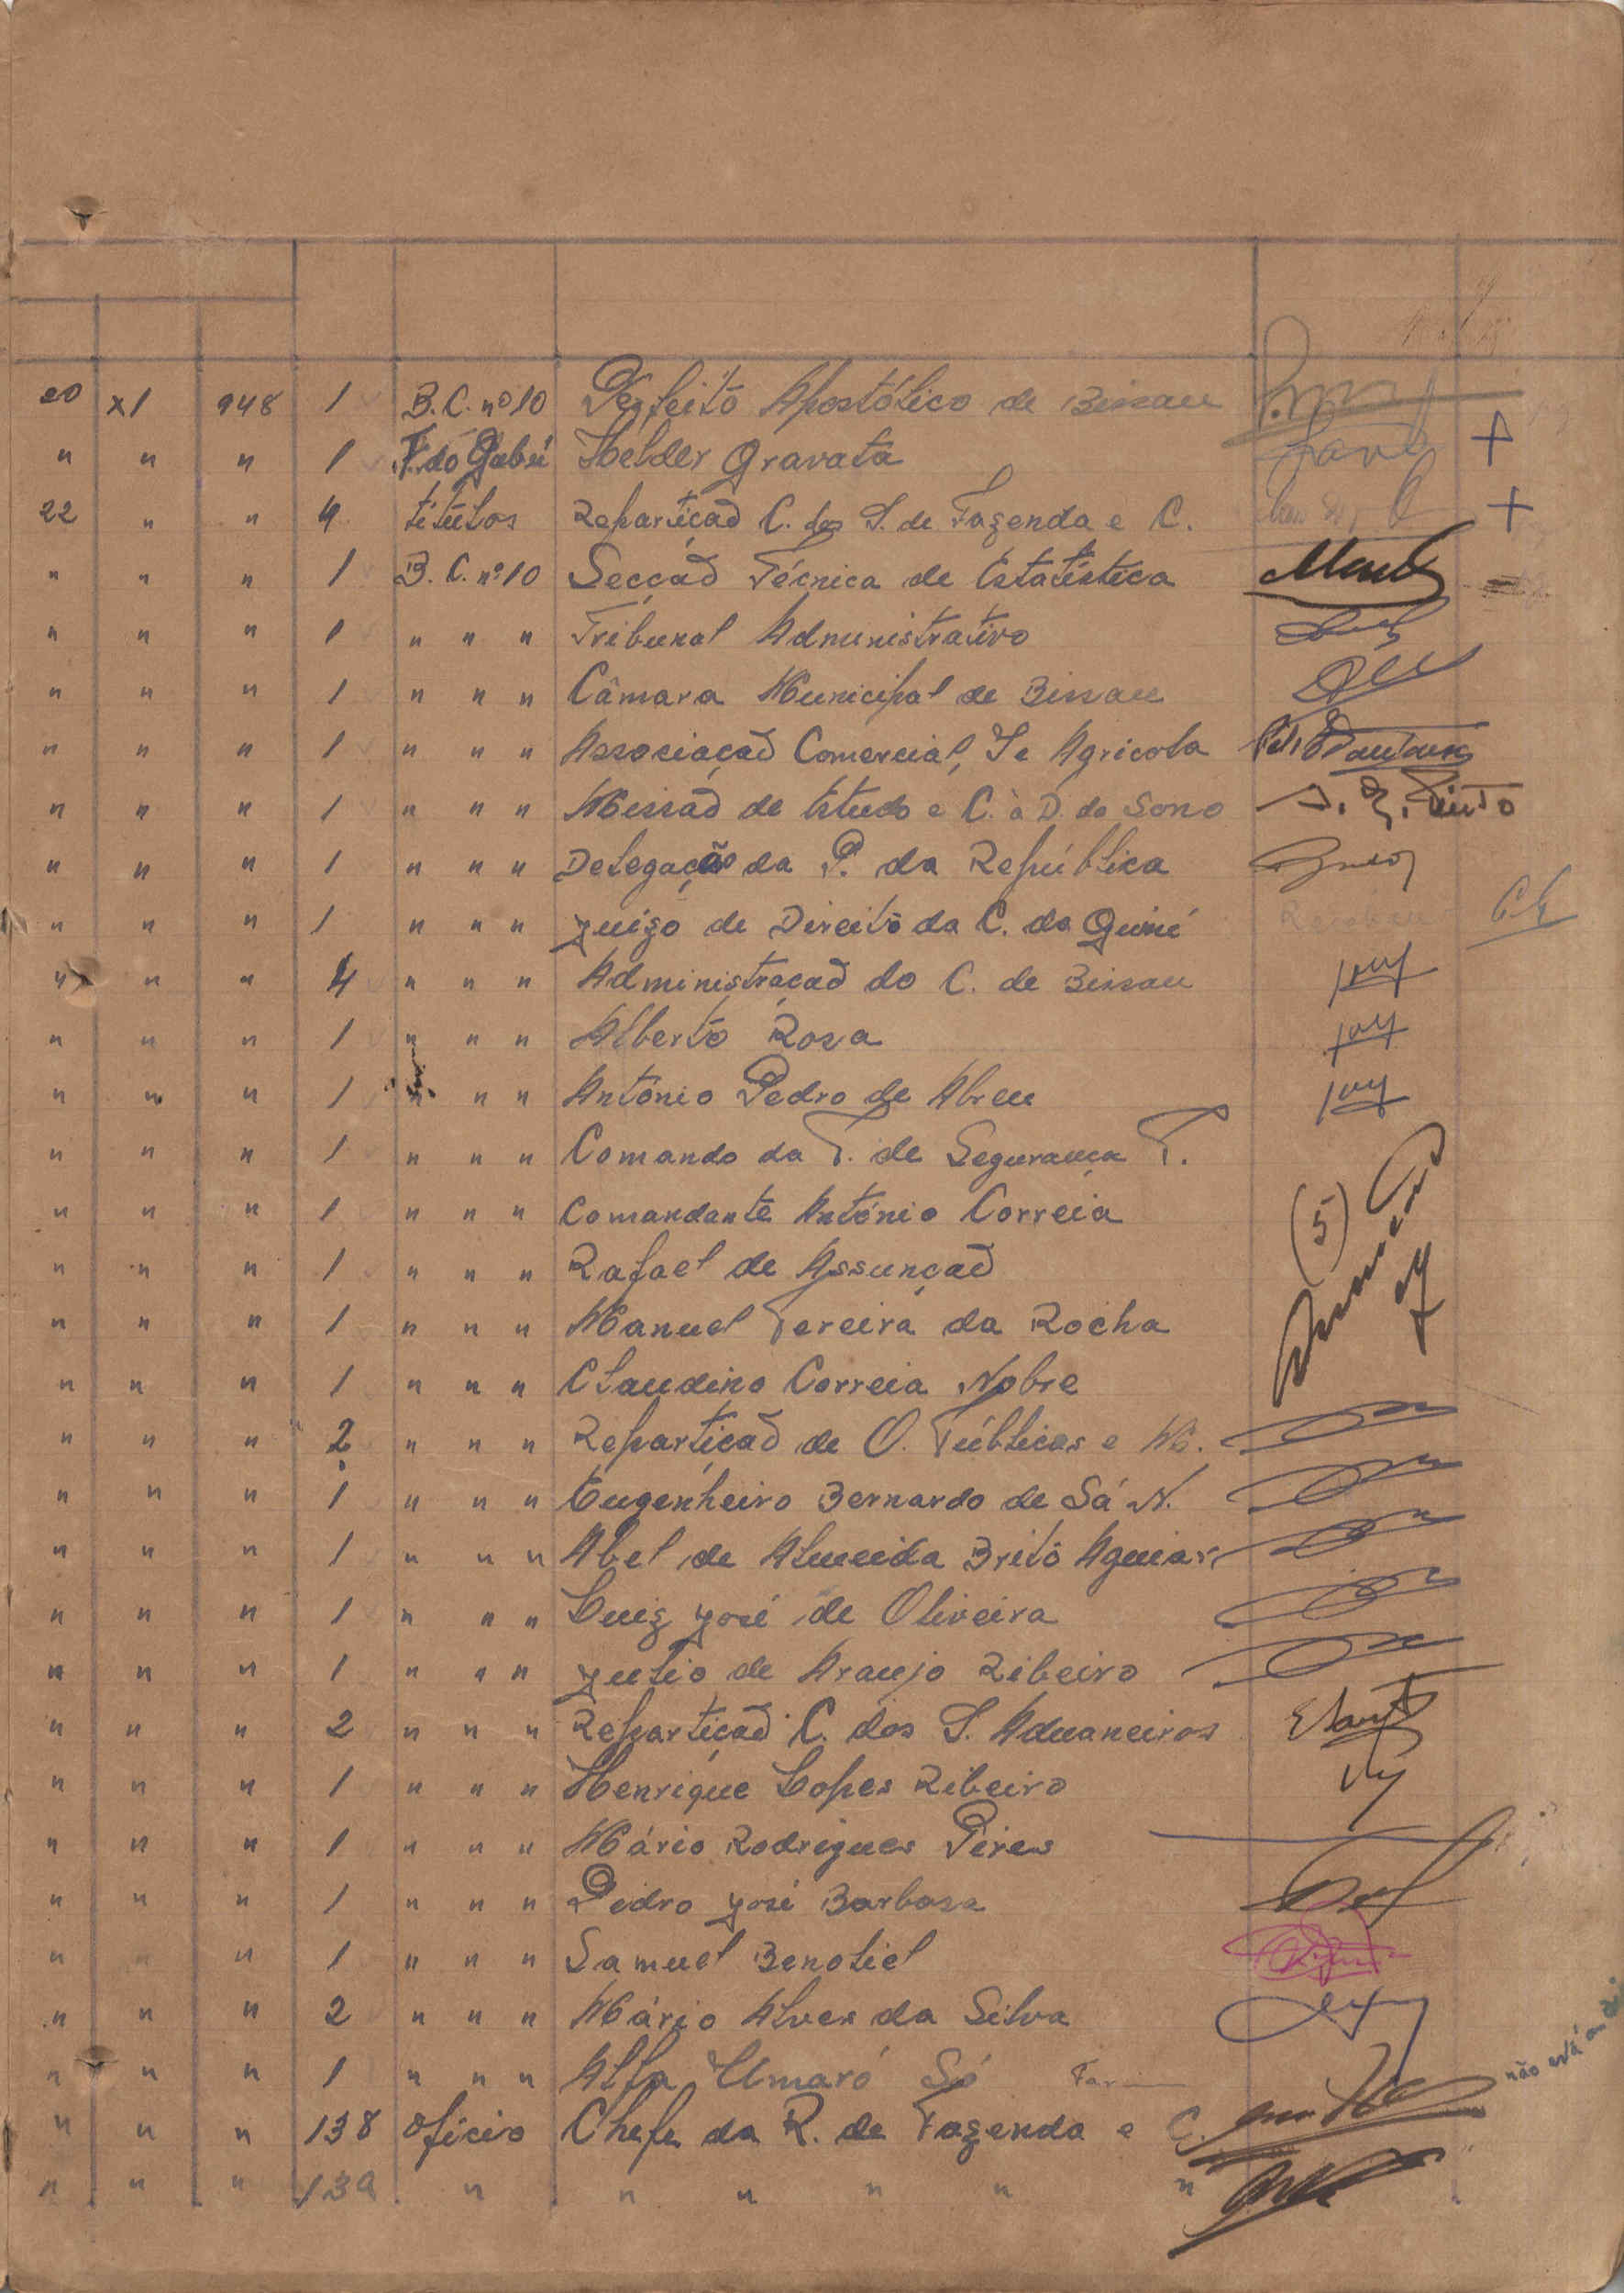 20 XI 948 1 B.C. nº 10 Perfeito Apostólico de Bissau
" " " 1 F. do Gabú Helder Gravata +
22 " " 4 títulos Repartição C. dos S. de Fazenda e C. +
" " " 1 B.C. nº 10 Secção Técnica de Estatística
" " " 1 " " " Tribunal Administrativo
" " " 1 " " " Câmara Municipal de Bissau
" " " 1 " " " Associação Comercial, I e Agricola
" " " 1 " " " Missão de Estudo e C. à D. do Sono Pinto
" " " 1 " " " Delegação da P. da República
" " " 1 " " " Juizo de Direito da C. da Guiné
" " " 4 " " " Administração do C. de Bissau
" " " 1 " " " Alberto Rosa
" " " 1 " " " António Pedro de Abreu
" " " 1 " " " Comando da P. de Segurança P.
" " " 1 " " " Comandante António Correia (5)
" " " 1 " " " Rafael de Assunção
" " " 1 " " " Manuel Pereira da Rocha
" " " 1 " " " Claudino Correia Nobre
" " " 2 " " " Repartição de O. Públicas e M.
" " " 1 " " " Eugenheiro Bernardo de Sá N.
" " " 1 " " " Abel de Almeida Brito Aguiar
" " " 1 " " " Luiz José de Oliveira
" " " 1 " " " Julio de Araujo Ribeiro
" " " 2 " " " Repartição C. dos S. Aduaneiros
" " " 1 " " " Henrique Lopes Ribeiro
" " " 1 " " " Mário Rodrigues Pires
" " " 1 " " " Pedro José Barbosa
" " " 1 " " " Samuel Benoliel
" " " 2 " " " Mário Alves da Silva
" " " 1 " " " Alfa Umaró Só não está
" " " 138 oficio Chefe da R. de Fazenda e C.
" " " 139 " " " " " "